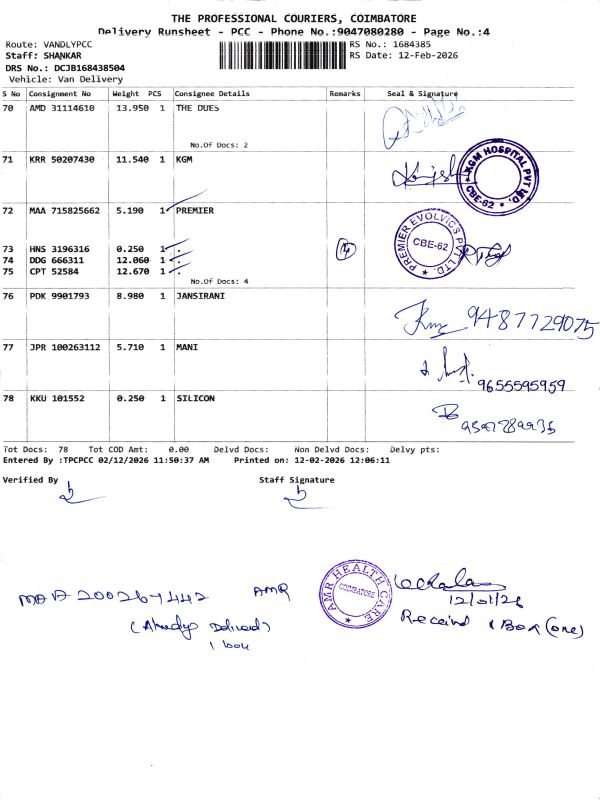 THE PROFESSIONAL COURIERS, COIMBATORE
Delivery Runsheet - PCC - Phone No.:9047080280 - Page No.:4
Route: VANDLYPCC RS No.: 1684385
Staff: SHANKAR RS Date: 12-Feb-2026
DRS No.: DCJB168438504
Vehicle: Van Delivery
S No Consignment No Weight PCS Consignee Details Remarks Seal & Signature
70 AMD 31114610 13.950 1 THE DUES
No.Of Docs: 2
71 KRR 50207430 11.540 1 KGM
KGM HOSPITAL PVT LTD. CBE-62
72 MAA 715825662 5.190 1 PREMIER
PREMIER EVOLVICS PVT LTD. CBE-62
73 HNS 3196316 0.250 1
74 DDG 666311 12.060 1
75 CPT 52584 12.670 1
4
No.Of Docs: 4
76 PDK 9901793 8.980 1 JANSIRANI
9487729075
77 JPR 100263112 5.710 1 MANI
9655595959
78 KKU 101552 0.250 1 SILICON
Tot Docs: 78 Tot COD Amt: 0.00 Delvd Docs: Non Delvd Docs: Delvy pts:
Entered By :TPCPCC 02/12/2026 11:50:37 AM Printed on: 12-02-2026 12:06:11
Verified By Staff Signature
AMR
AMR HEALTH CARE COIMBATORE
Received 1 Box (one)
1 box